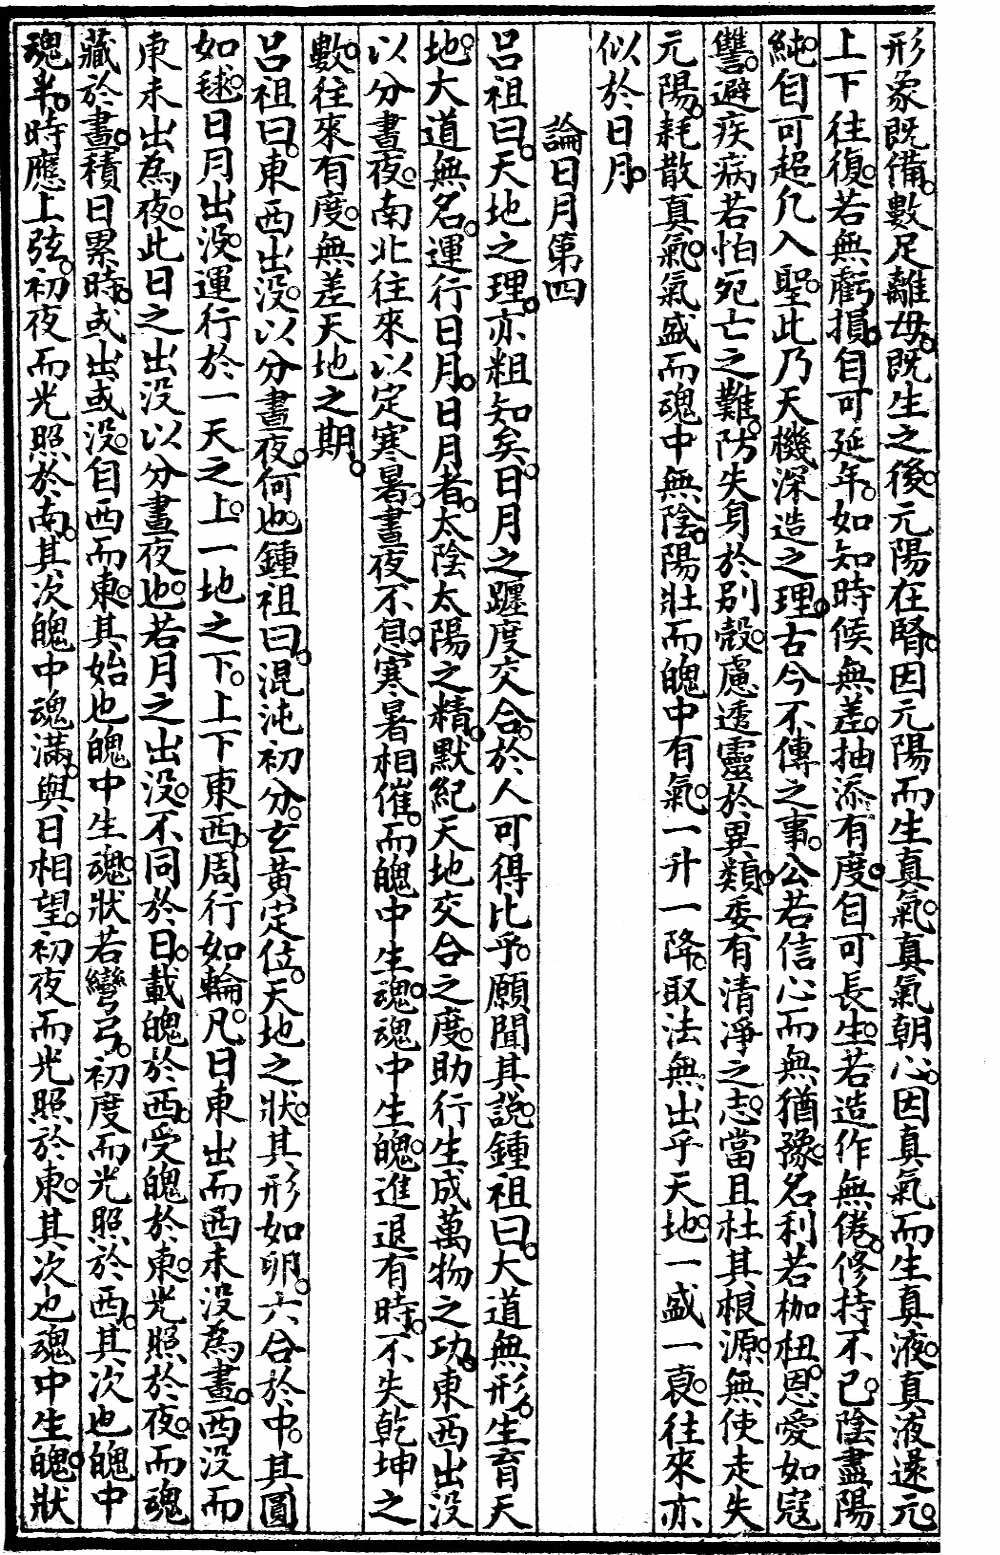 形象既備。數足離母。既生之後。元陽在腎。因元陽而生真氣。真氣朝心。因真氣而生真液。真液還元。
上下往復。若無虧損。自可延年。如知時候無差。抽添有度。自可長生。若造作無倦。修持不已。陰盡陽
純。自可超凡入聖。此乃天機深造之理。古今不傳之事。公若信心而無猶豫。名利若枷杻。恩愛如寇
讐。避疾病若怕死亡之難。防失身於別殼。慮透靈於異類。委有清淨之志。當且杜其根源。無使走失
元陽。耗散真氣。氣盛而魂中無陰。陽壯而魄中有氣。一升一降。取法無出乎天地。一盛一衰。往來亦
似於日月。
論日月第四
呂祖曰。天地之理。亦粗知矣。日月之躔度交合。於人可得比乎。願聞其說。鍾祖曰。大道無形。生育天
地。大道無名。運行日月。日月者。太陰太陽之精。默紀天地交合之度。助行生成萬物之功。東西出沒
以分晝夜。南北往來以定寒暑。晝夜不息。寒暑相催。而魄中生魂。魂中生魄。進退有時。不失乾坤之
數。往來有度。無差天地之期。
呂祖曰。東西出沒。以分晝夜。何也。鍾祖曰。混沌初分。玄黃定位。天地之狀。其形如卵。六合於中。其圓
如毬。日月出沒。運行於一天之上。一地之下。上下東西。周行如輪。凡日東出而西未沒為晝。西沒而
東未出為夜。此日之出沒以分晝夜也。若月之出沒。不同於日。載魄於西。受魄於東。光照於夜。而魂
藏於晝。積日累時。或出或沒。自西而東。其始也魄中生魂。狀若彎弓。初度而光照於西。其次也魄中
魂半。時應上弦。初夜而光照於南。其次魄中魂滿。與日相望。初夜而光照於東。其次也魂中生魄。狀